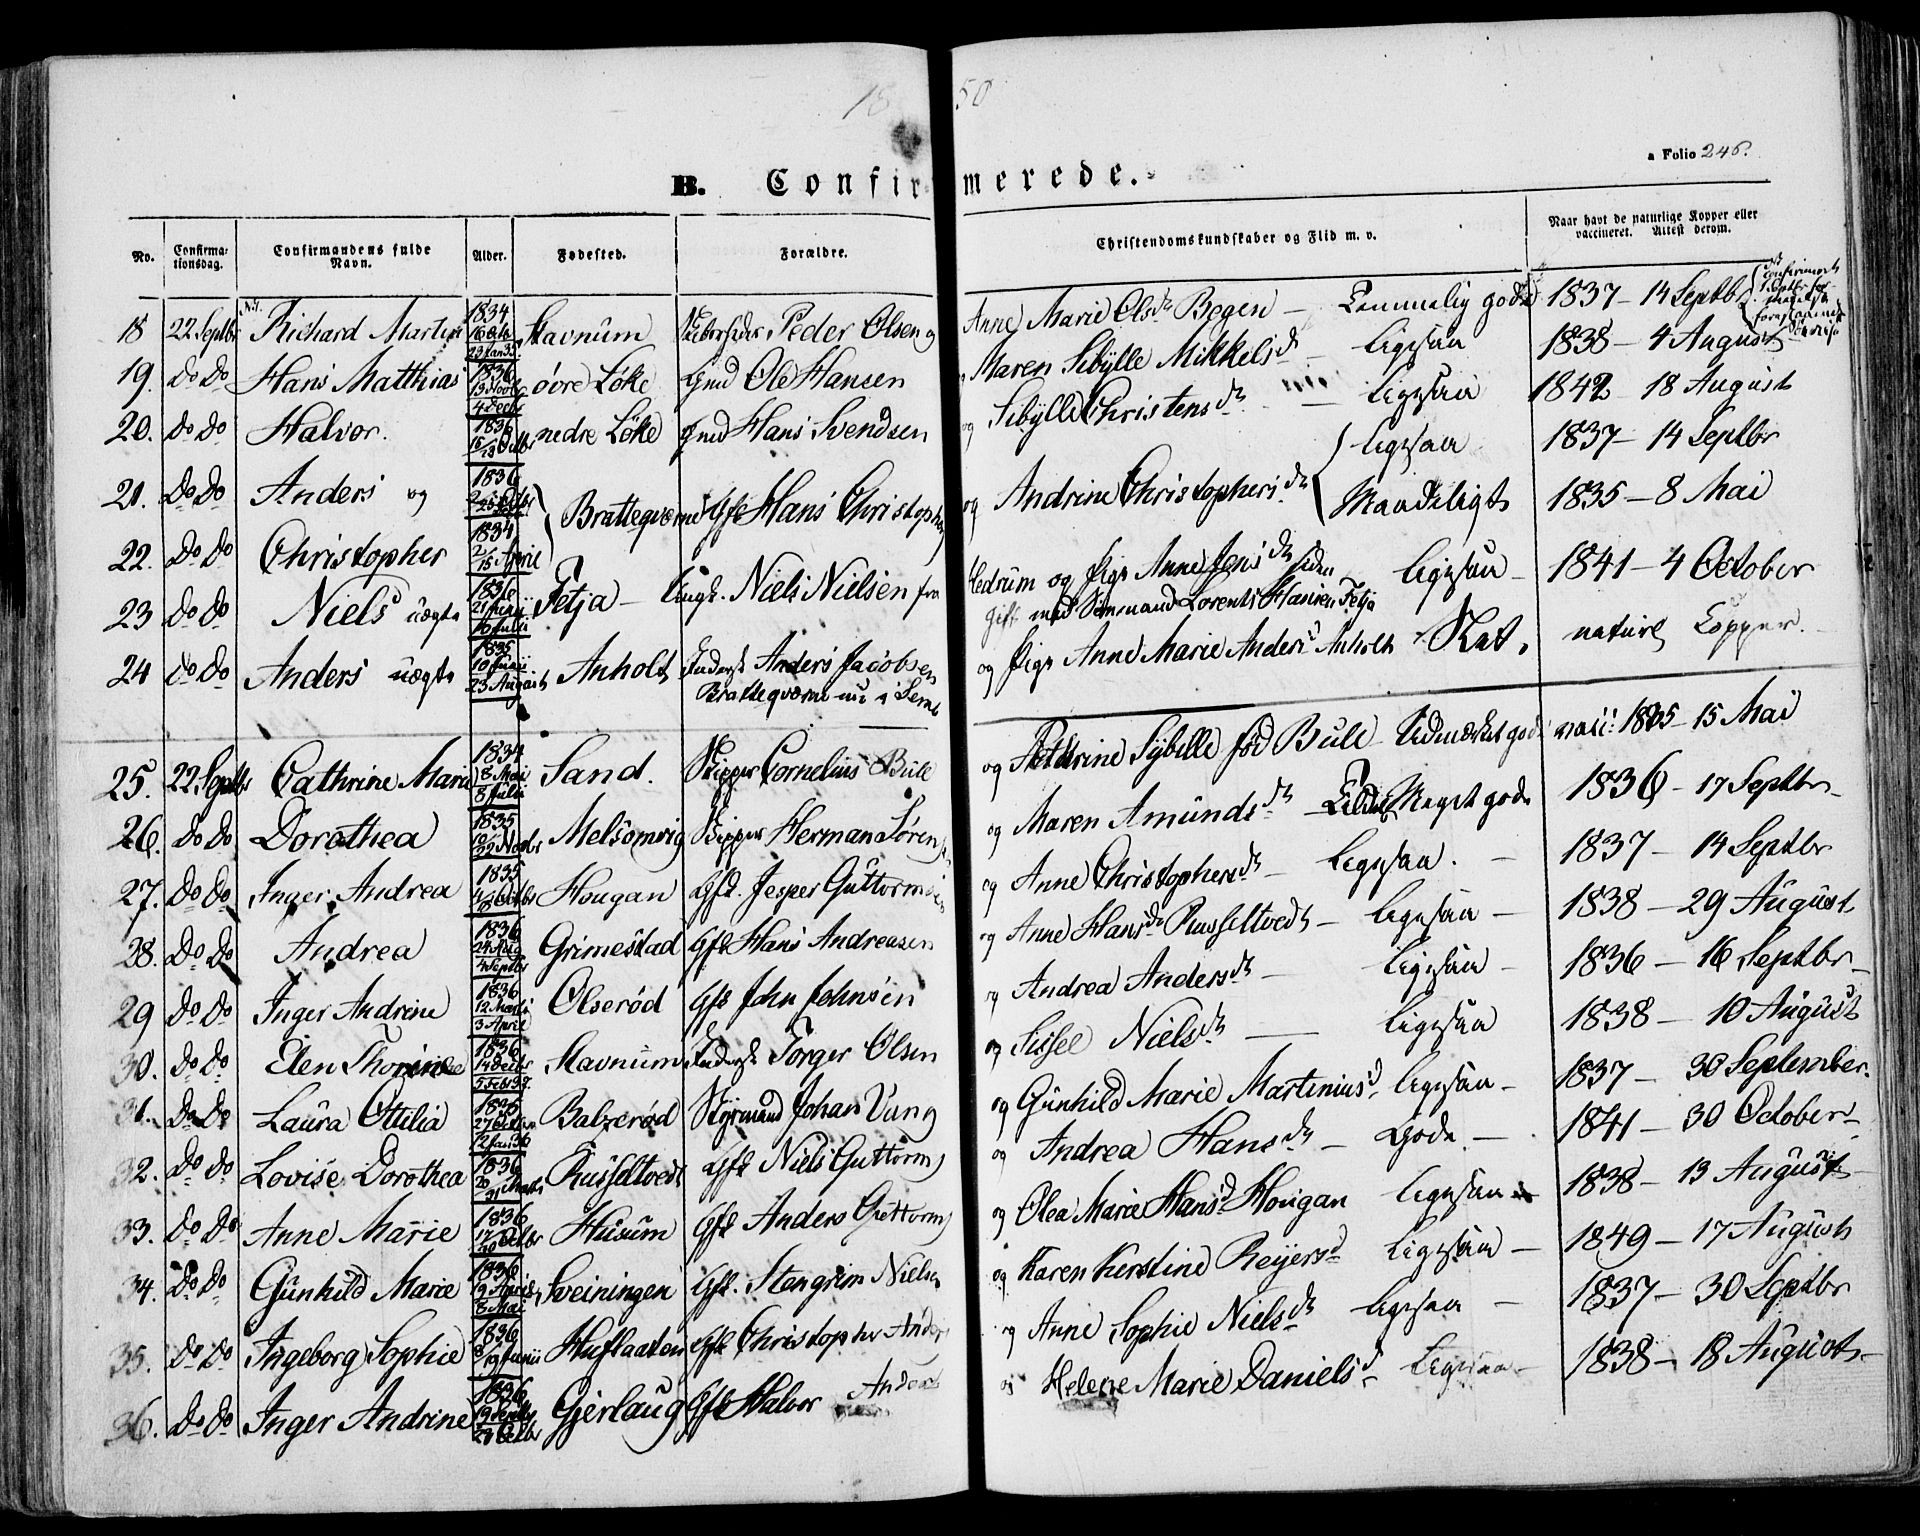 1850
a Folio 246.
B. Confirmerede.
No. Confirmationsdag. Confirmandens fulde Navn. Alder. Fødested. Forældre. Christendomskundskaber og Flid m. v. Naar havt de naturlige Kopper eller vaccineret. Attest derom.
18 22 Septbr Richard Martin 1834 16 Octo 23 Jan 35. Stavnum Peder Olsen og Anne Marie Olsdr Bogen — Temmelig gode 1837 — 14 Septbr
19. Do Do Hans Matthias 1836 13 Novbr 4 Decbr øvre Løke Gmd Ole Hansen og Maren Sibylle Mikkelsd — Ligesaa 1838 — 4 August
20. Do Do Halvor. 1836 nedre Løke Gmd Hans Svendsen og Sibylle Christensdr — Ligesaa 1842 — 18 August
21. Do Do Anders og 1836 Brattegværne Gfk Hans Christophers og Andrine Christophersdr Ligesaa 1837 — 14 Septbr
22. Do Do Christopher 1834 2/15 April Maadeligt 1835 — 8 Mai
23 Do Do Niels uægte 1836 21 Juni 10 Julii Fetja — Ungk. Niels Nielsen fra Hedrum og Pige Anne Jensdr siden Ligesaa — 1841 — 4 October
gift med Sømand Lorents Hansen Fetja
24 Do Do Anders uægte 1835 10 Junii 23 August Anholt Anders Jacobsen og Pige Anne Marie Andersd Anholt Slet, naturl Copper. —
Brattegværne nu i Sem
25. 22 Septbr Cathrine Marie 1834 8 Mai 8 Julii Sand. Skipper Cornelius Bull og Petterine Sybille fød Bull — Udmærket god vacc: 1835 — 15 Mai
26. Do Do Dorothea 1835 10/22 Novbr Melsomvig Skipper Herman Sørensen og Maren Amundsdr — Meget gode 1836 — 17 Septbr —
27. Do Do Inger Andrea 1835 Hougan Gfk. Jesper Guttormsen og Anne Christophersdr — Ligesaa. — 1837 — 14 Septbr
28. Do Do Andrea 1836 24 Aug 4 Septbr Grimestad Gfk Hans Andreasen og Anne Hansdr Russeltvedt — Ligesaa — 1838 — 29 August
29 Do Do Inger Andrine 1836 12 Marts 3 April Olserød Gfk John Johnsen og Andrea Andersdr — Ligesaa — 1836 — 16 Septbr —
30. Do Do Elen Thorine 1836 14 Decbr 5 Febr 37. Stavnum Torger Olsen og Sissel Nielsdr — Ligesaa 1838 — 10 August
31. Do Do Laura Ottilia 1835 12 Jan 36 Balzerød Styrmand Johan Vung og Gunhild Marie Martiniusd. Ligesaa — 1837 — 30 September.
32. Do Do Lovise Dorothea 1836 20/31 Marts Russeltvedt Gfk Niels Guttorms og Andrea Hansdr — Gode — 1841 — 30 October —
33. Do Do Anne Marie 1836 Husum Gfk Anders Guttorms og Olea Marie Hansd Hougan Ligesaa 1838 — 13 August —
34. Do Do Gunhild Marie 1836 19 April 8 Mai Sveiningen Gfk. Stengrim Nielsen og Karen Kerstine Reiersd Ligesaa — 1849 — 17 August
35. Do Do Ingeborg Sophie 1836 8/19 Junii Huflaaten Gfk Christopher Anders og Anne Sophie Nielsdr Ligesaa — 1837 — 30 Septbr
36. Do Do Inger Andrine 1836 Gjerlaug Gfk Halvor Anders og Helene Marie Danielsd — Ligesaa — 1838 — 18 August —